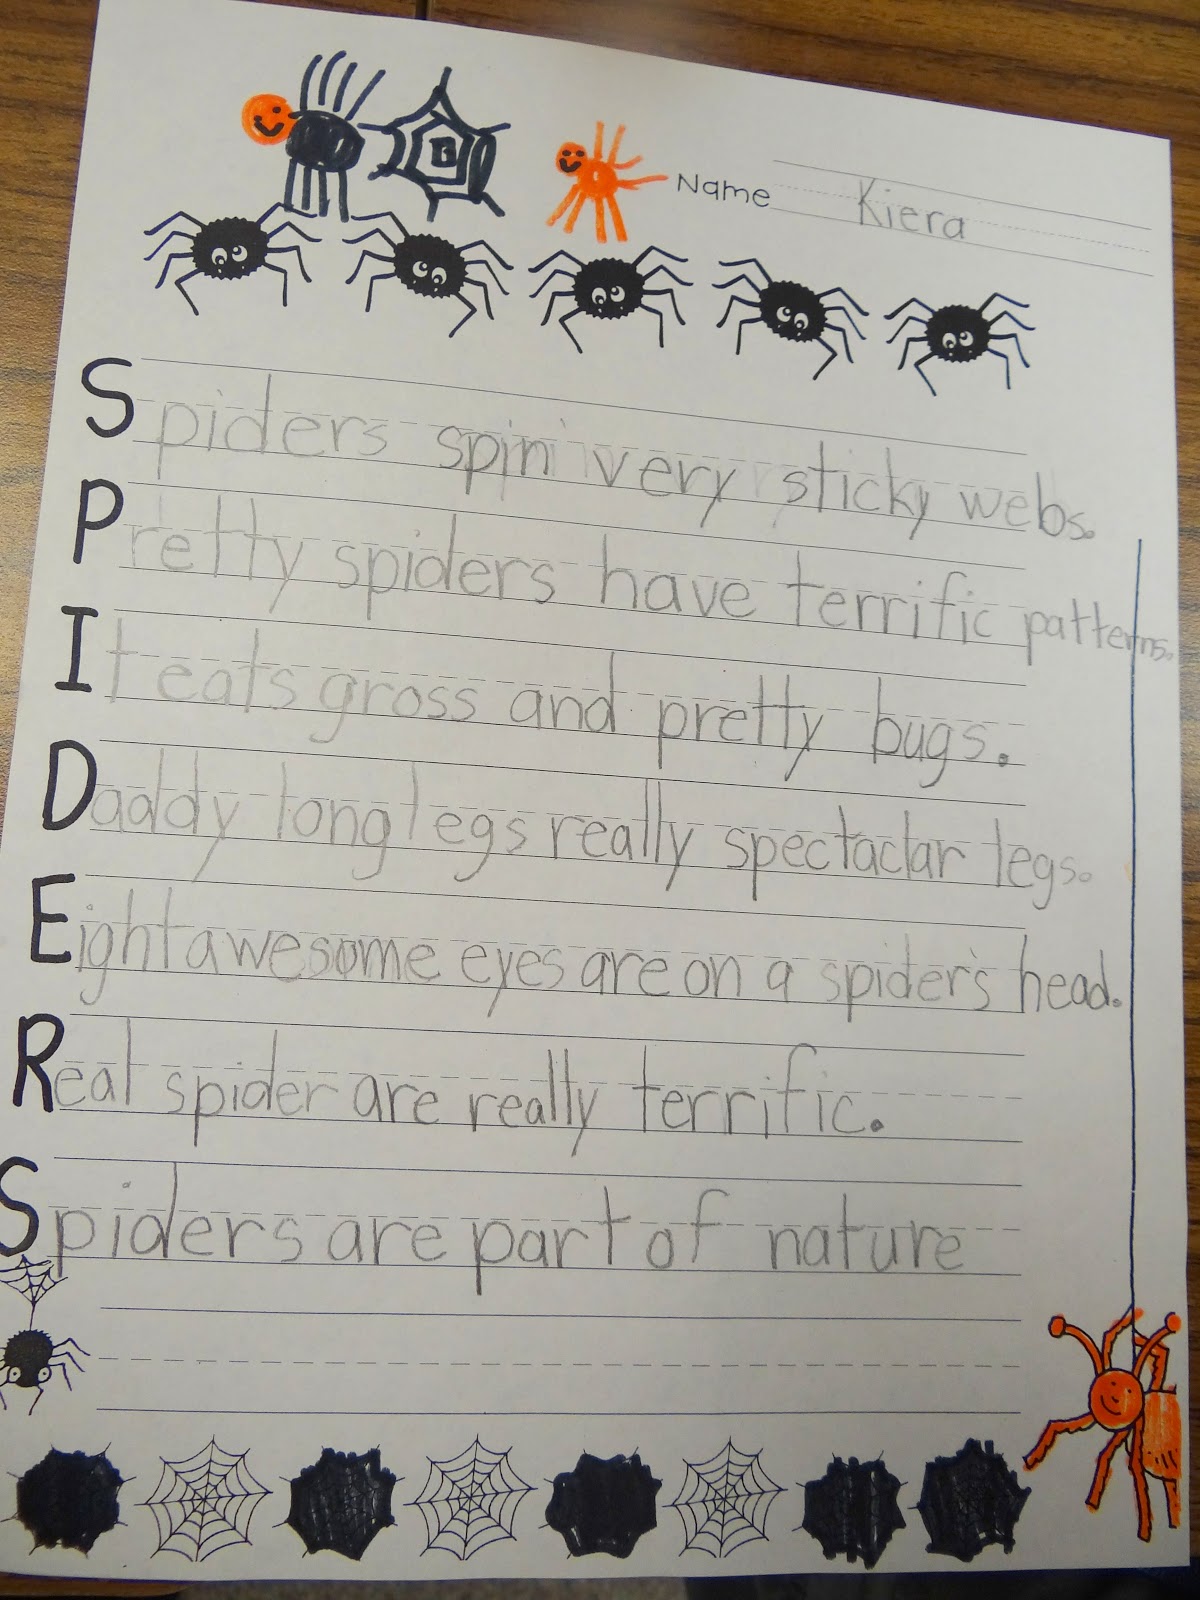 Name Kiera
Spiders spin very sticky webs.
Pretty spiders have terrific patterns.
It eats gross and pretty bugs.
Daddy long legs really spectaclar legs.
Eight awesome eyes are on a spider's head.
Real spider are really terrific.
Spiders are part of nature